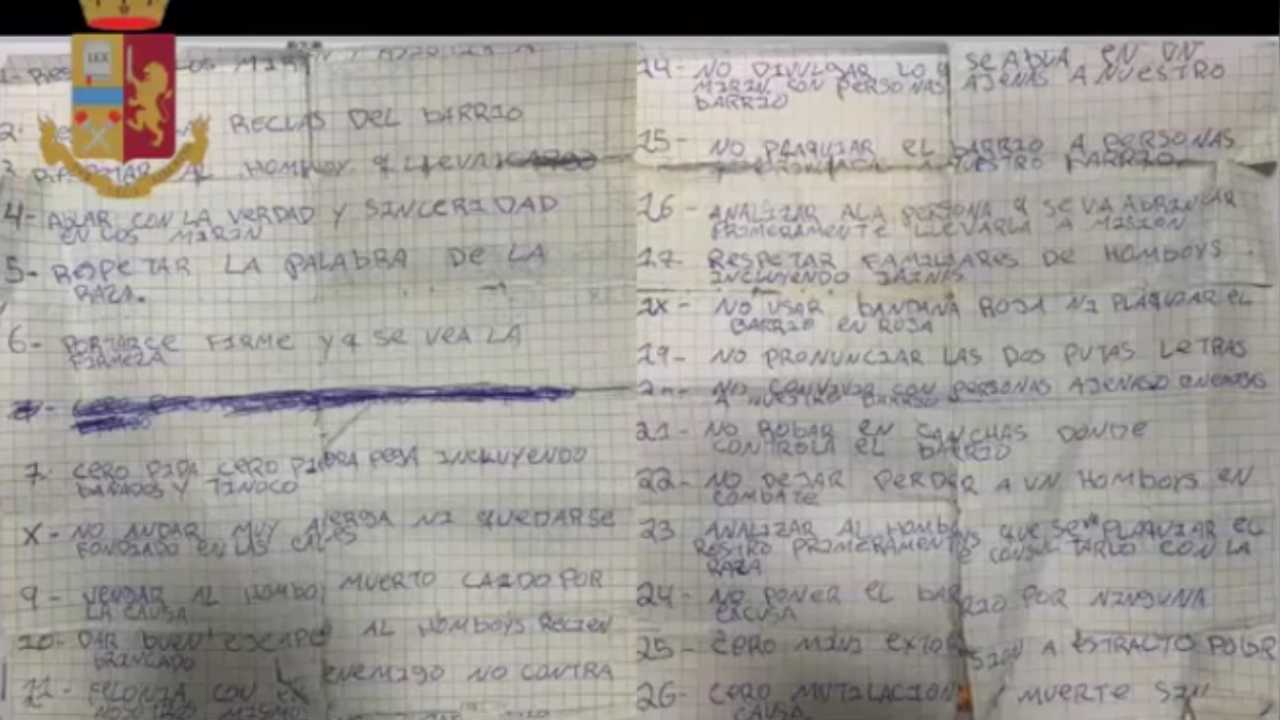 LEX
1- RES
2- REGLAS DEL BARRIO
3 AL HOMBOY Q LLEVA
4- ABLAR CON LA VERDAD Y SINCERIDAD
EN LOS MIRIN
5- RESPETAR LA PALABRA DE LA
RAZA.
6- PORTARCE FIRME Y Q SE VEA LA
FIRMEZA
7. CERO PIPA CERO PIEDRA PEGA INCLUYENDO
BAÑADOS Y TINOCO
X- NO ANDAR MUY AIERBA NI QUEDARSE
FONDIADO EN LAS CALLES
9- VENGAR AL HOMBOY MUERTO CAIDO POR
LA CAUSA
10- DAR BUEN EJEMPLO AL HOMBOYS RECIEN
BRINCADO
11- FELONIA CON EL ENEMIGO NO CONTRA
NOSOTROS MISMOS
14- NO DIVULGAR LO Q SE ABLA EN UN
MIRIN CON PERSONAS AJENAS A NUESTRO
BARRIO
15- NO PLAQUIAR EL BARRIO A PERSONAS
NUESTRO BARRIO
16- ANALIZAR ALA PERSONA Q SE VA ABRINCAR
PRIMERAMENTE LLEVARLA A MISION
17- RESPETAR FAMILIARES DE HOMBOYS
INCLUYENDO JAINAS
1X- NO USAR BANDANA ROJA NI PLAQUIAR EL
BARRIO EN ROJA
19- NO PRONUNCIAR LAS DOS PUTAS LETRAS
20- NO CONVIVIR CON PERSONAS AJENAS O ENEMIGAS
A NUESTRO BARRIO
21- NO ROBAR EN CANCHAS DONDE
CONTROLA EL BARRIO
22- NO DEJAR PERDER A UN HOMBOYS EN
COMBATE
23 ANALIZAR AL HOMBOYS QUE SE VA PLAQUIAR EL
ROSTRO PRIMERAMENTE CONSULTARLO CON LA
RAZA
24- NO PONER EL BARRIO POR NINGUNA
EXCUSA
25- CERO MINI EXTORSION A ESTRACTO POBR
26- CERO MUTILACION / MUERTE SIN
CAUSA